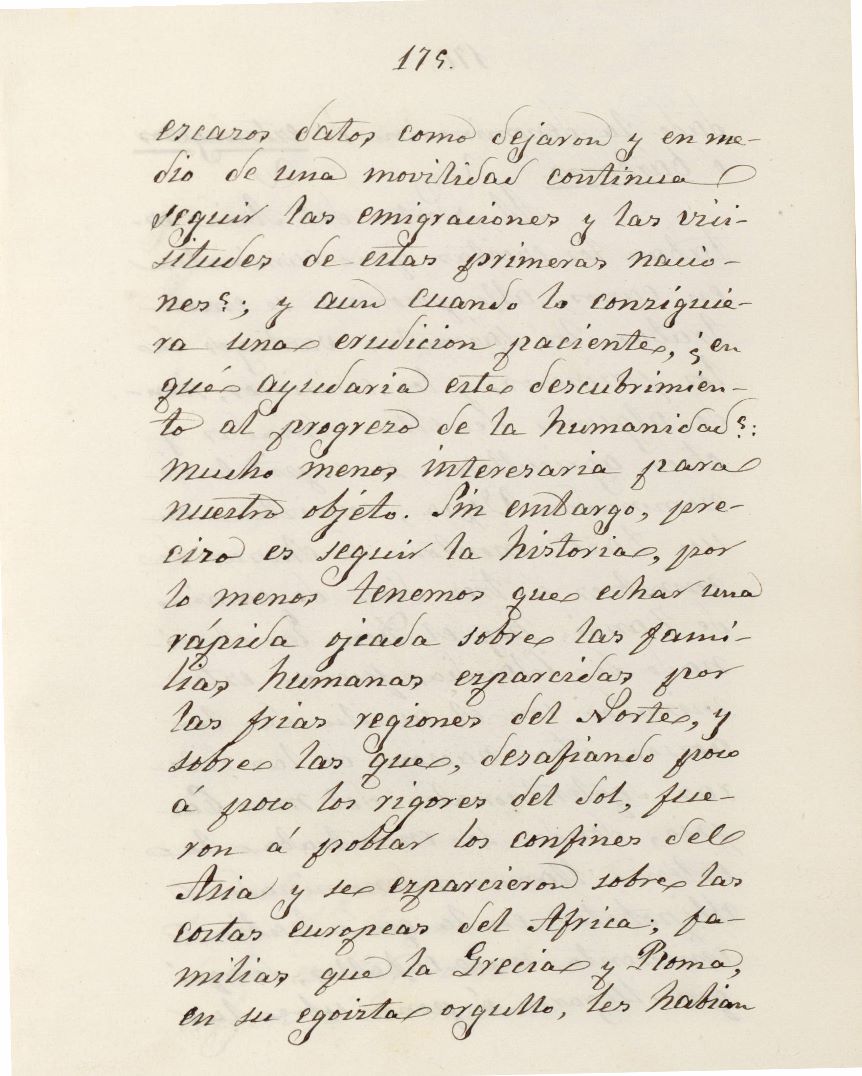 175.
escazos datos como dejaron y en me-
dio de una movilidad continua
seguir las emigraciones y las vici-
situdes de estas primeras nacio-
nes?; y aun cuando lo consiguie-
ra una erudicion paciente, ¿en
qué ayudaria este descubrimien-
to al progrezo de la humanidad?:
mucho menos interesaria para
nuestro objéto. Sin embargo, pre-
cizo es seguir la historia, por
lo menos tenemos que echar una
rápida ojeada sobre las fami-
lias humanas ezparcidas por
las frias regiones del Norte, y
sobre las que, desafiando poco
á poco los rigores del Sol, fue-
ron á poblar los confines del
Asia y se ezparcieron sobre las
costas europeas del Africa; fa-
milias que la Grecia y Roma,
en su egoista orgullo, les habian